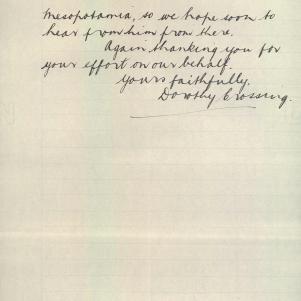 Mesopotamia, so we hope soon to
hear from him from there.
Again thanking you for
your effort on our behalf.
Yours faithfully,
Dorothy Crossing.